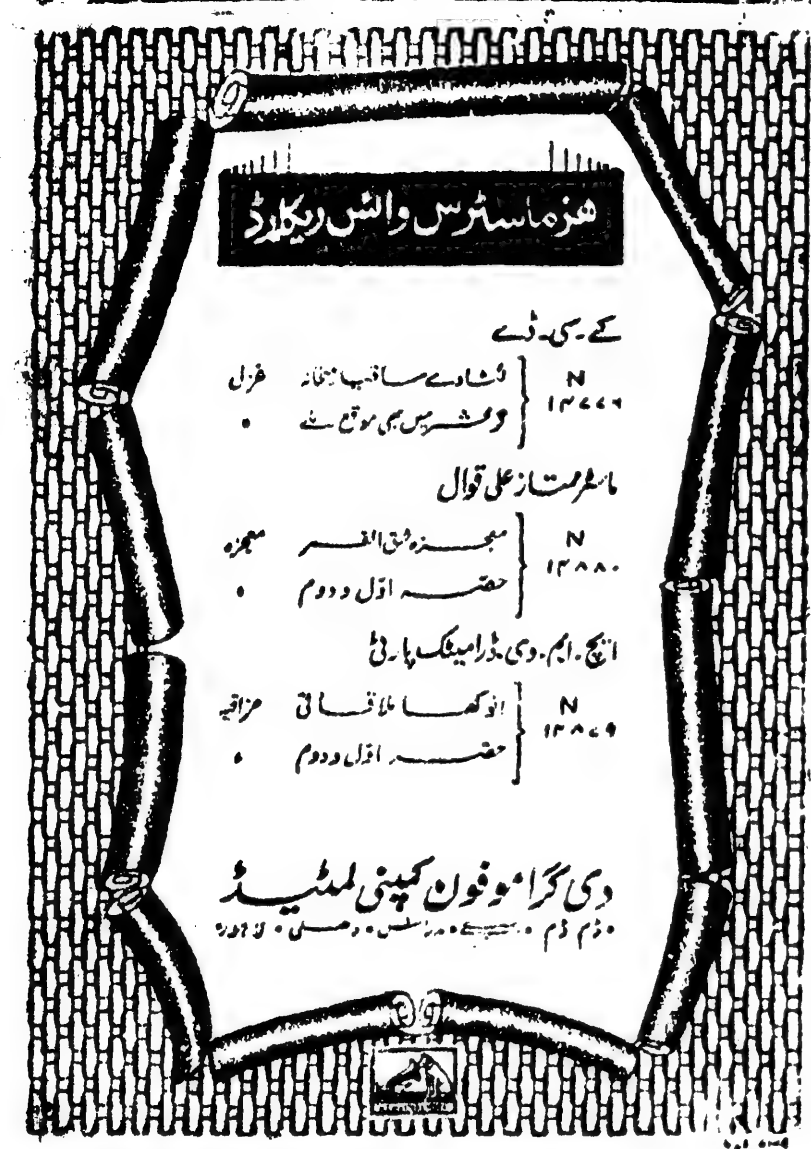 ہز ماسٹرس وائس ریکارڈ
کے۔سی۔ڈے
N ۱۴۷۷۹ لٹا دے ساقیا میخانہ غزل
گر محشر میں بھی موقع ملے "
ماسٹر ممتاز علی قوال
N ۱۴۸۸۰ معجزہ شق القمر معجزہ
حصہ اوّل و دوم "
ایچ۔ایم۔وی۔ڈرامیٹک پارٹی
N ۱۴۸۷۹ انوکھا ملاقاتی مزاقیہ
حصہ اوّل و دوم "
دی گراموفون کمپنی لمٹیڈ
ڈم ڈم • بمبئے • مدراس • دہلی • لاہور